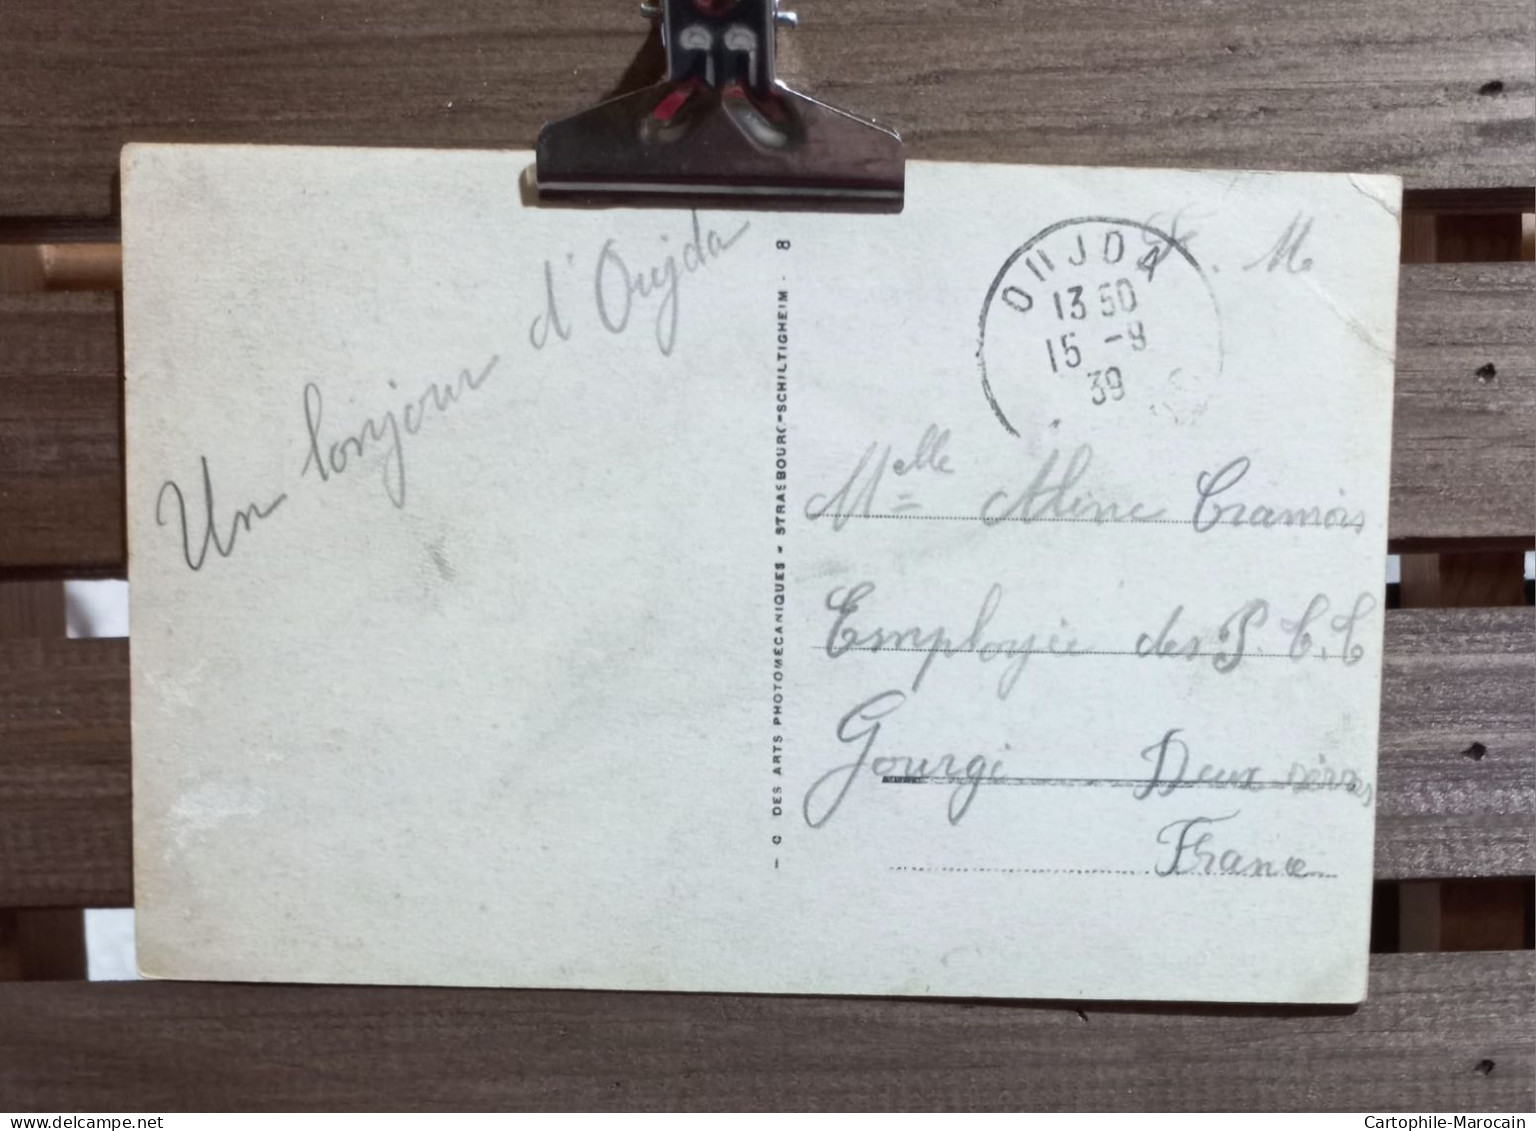 Un bonjour d'Oujda
— C DES ARTS PHOTOMÉCANIQUES - STRASBOURG-SCHILTIGHEIM . 8
F. M
OUJDA
13 50
15 -9
39
Melle Aline Cramois
Employée des P.T.T
Gourgé Deux-Sèvres
France
delcampe.net
Cartophile-Marocain